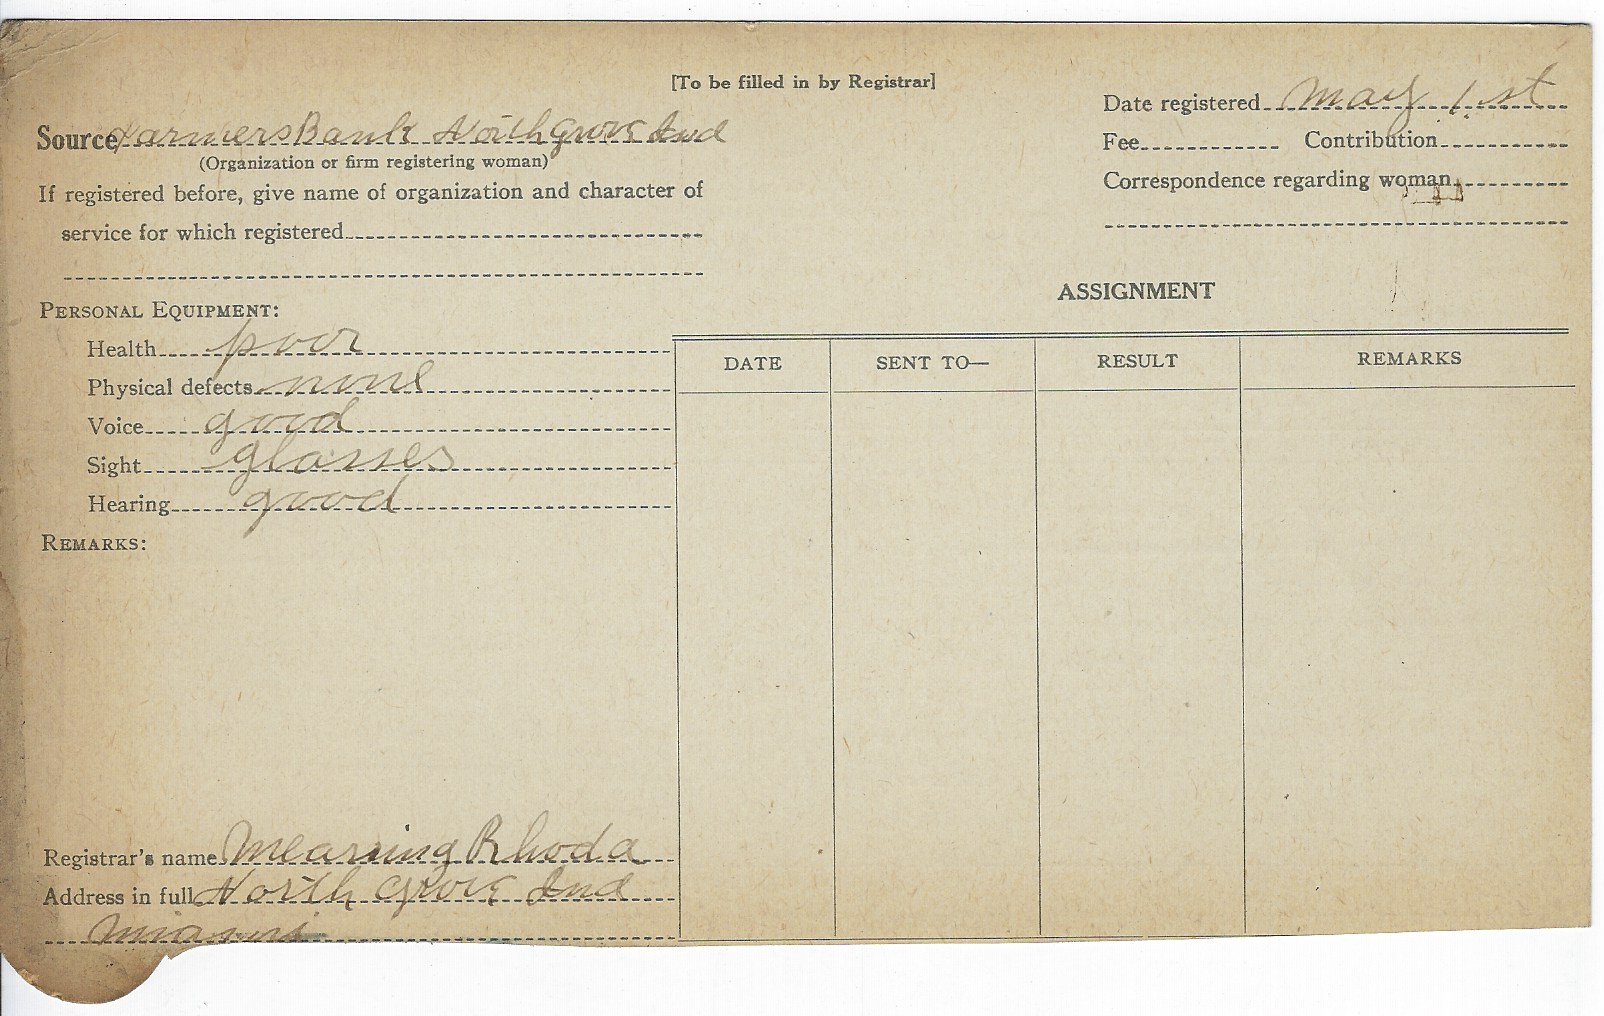 [To be filled in by Registrar]
Date registered May 1st
Source Farmers Bank North Grove Ind
(Organization or firm registering woman)
Fee Contribution
Correspondence regarding woman
If registered before, give name of organization and character of
service for which registered
ASSIGNMENT
PERSONAL EQUIPMENT:
Health poor
Physical defects none
Voice good
Sight glasses
Hearing good
REMARKS:
DATE SENT TO— RESULT REMARKS
Registrar's name Rhoda
Address in full North Grove Ind
Miami